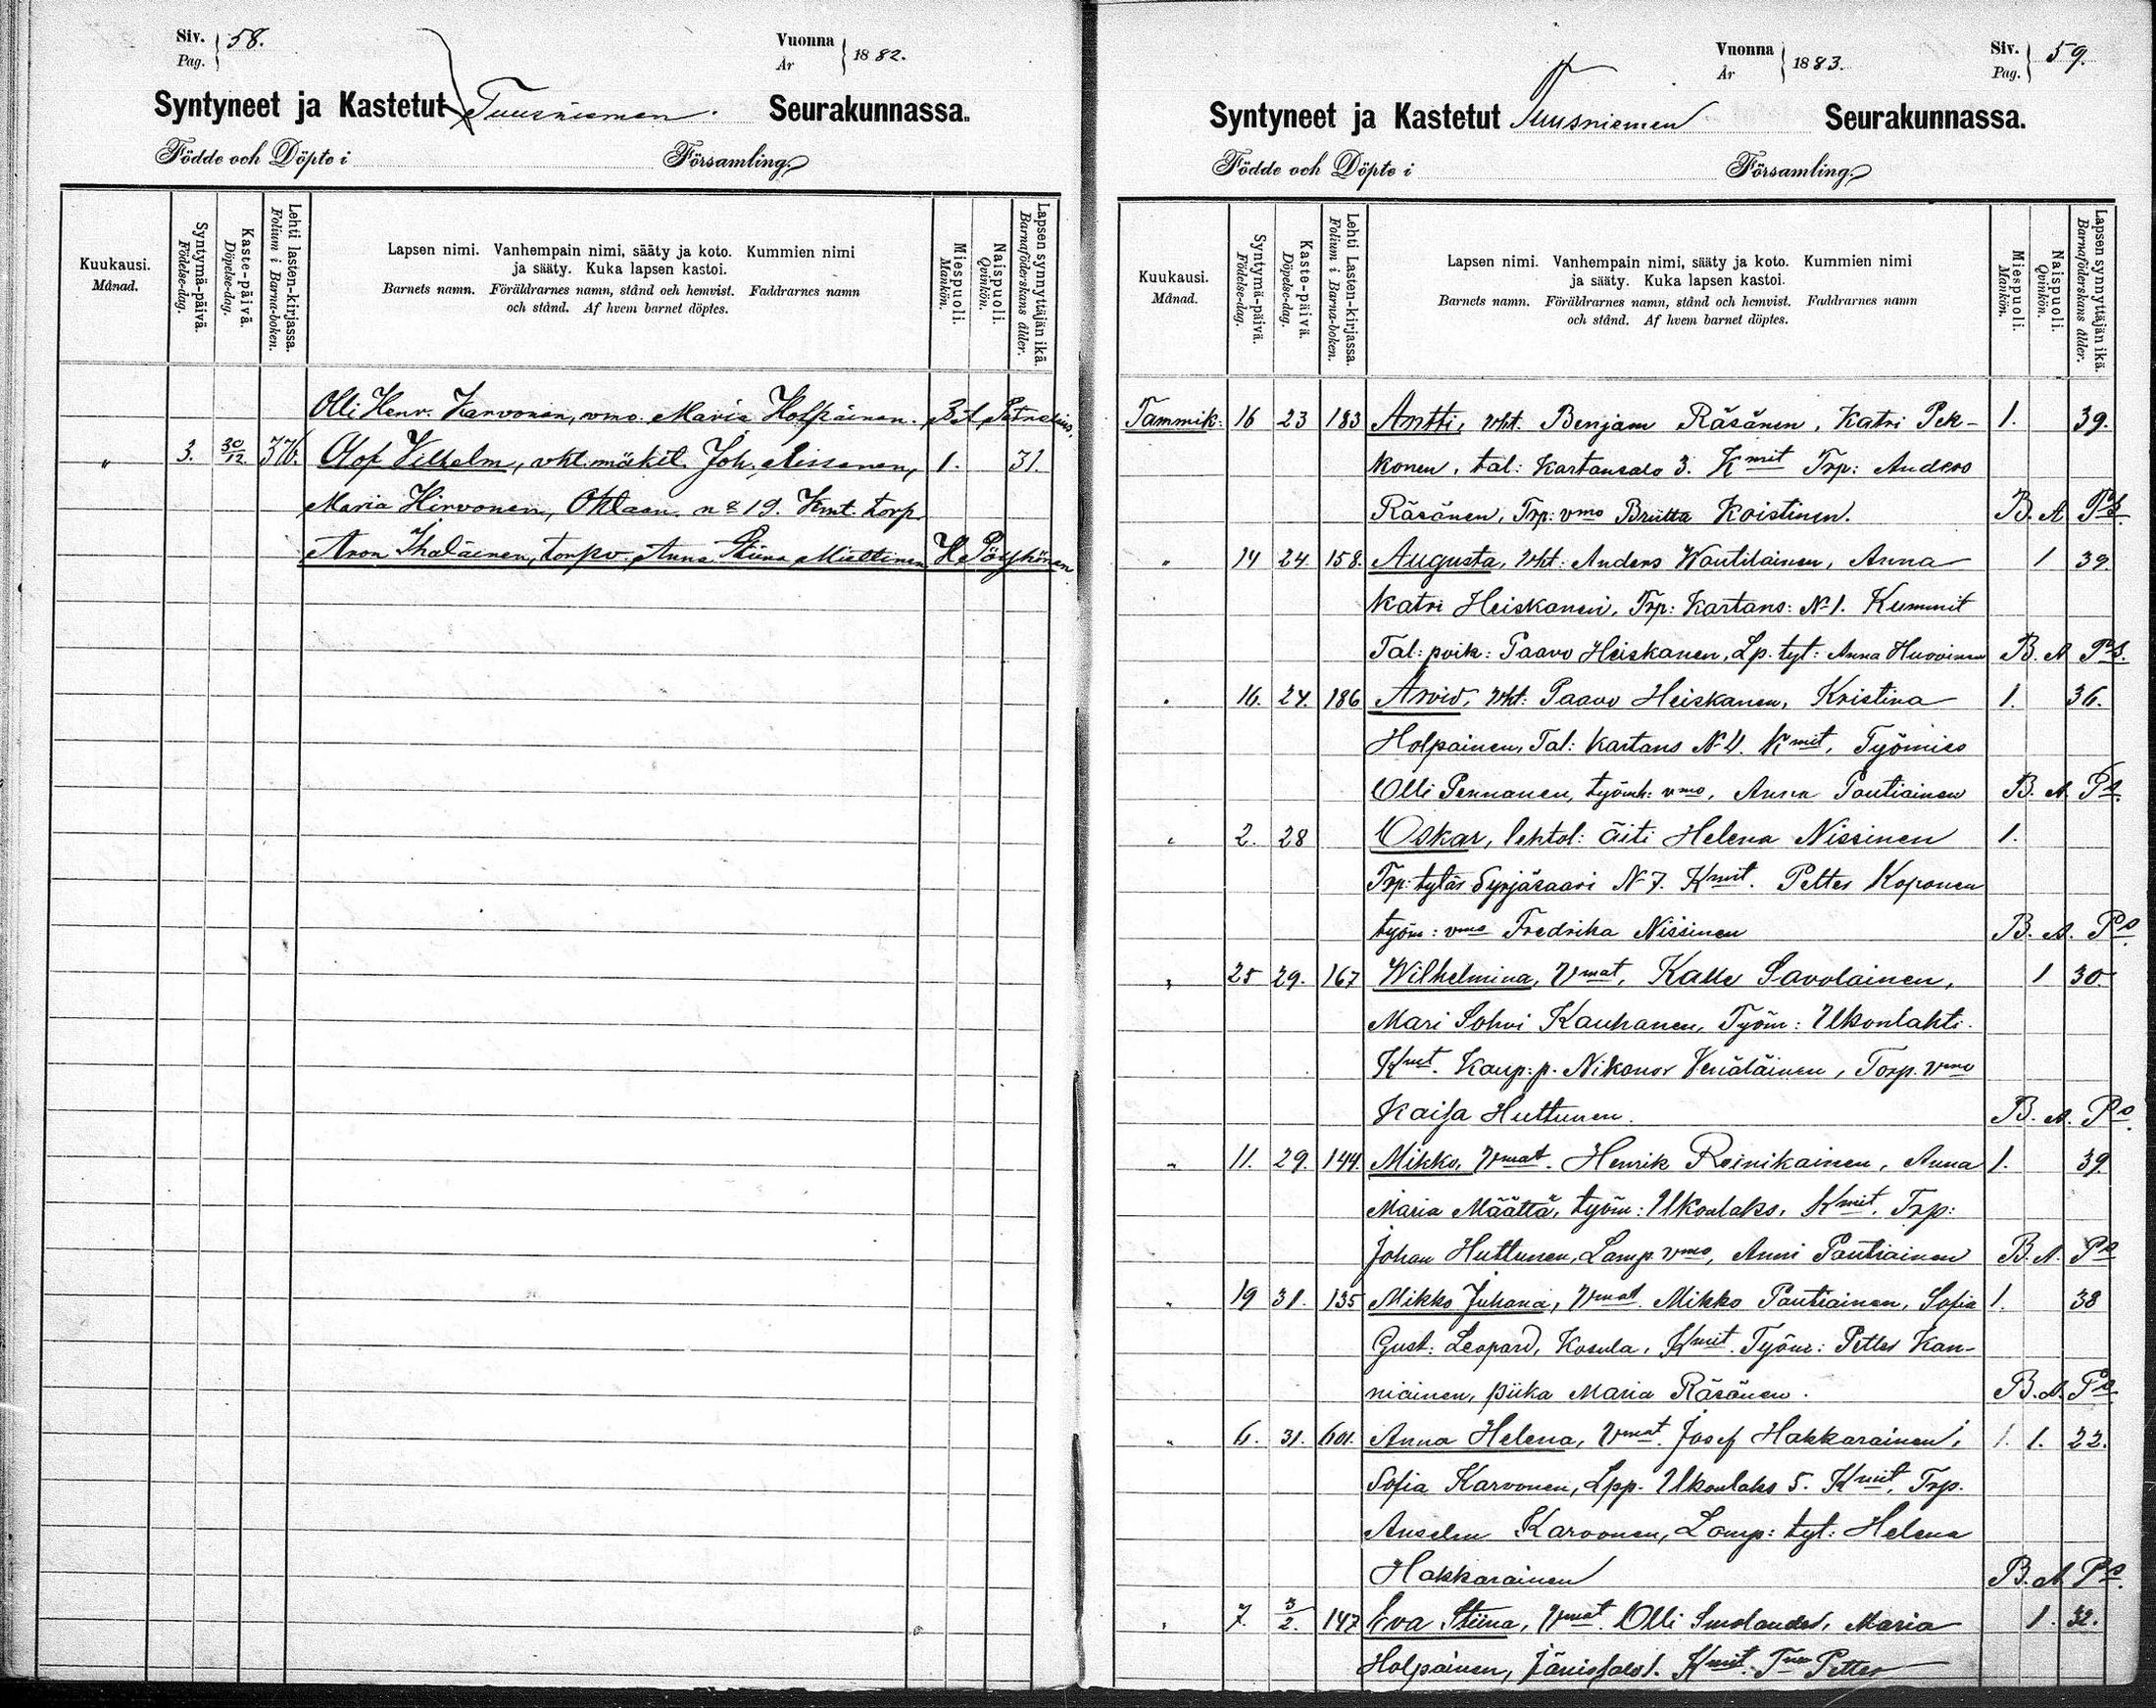 Siv. 58.
Pag.
Vuonna 1882.
År
Syntyneet ja Kastetut Tuusniemen Seurakunnassa.
Födde och Döpte i Församling.
Kuukausi.
Månad.
Syntymä-päivä.
Födelse-dag.
Kaste-päivä.
Döpelse-dag.
Lehti lasten-kirjassa.
Folium i Barna-boken.
Lapsen nimi. Vanhempain nimi, sääty ja koto. Kummien nimi
ja sääty. Kuka lapsen kastoi.
Barnets namn. Föräldrarnes namn, stånd och hemvist. Faddrarnes namn
och stånd. Af hvem barnet döptes.
Miespuoli.
Mankön.
Naispuoli.
Qvinkön.
Lapsen synnyttäjän ikä.
Barnaföderskans ålder.
Olli Henr. Karvonen, vmo. Maria Holpainen. B. A. Petrelius.
" 3. 30/12 376. Olof Vilhelm, vht. mäkit. Joh. Nissonen, 1. 31.
Maria Hirvonen, n:o 19. Kmt. torp.
Aron Ihaläinen, torpv. Anna Stina Miettinen H. Pöyhönen
Vuonna 1883.
År
Siv. 59.
Pag.
Syntyneet ja Kastetut Tuusniemen Seurakunnassa.
Födde och Döpte i Församling.
Kuukausi.
Månad.
Syntymä-päivä.
Födelse-dag.
Kaste-päivä.
Döpelse-dag.
Lehti Lasten-kirjassa.
Folium i Barna-boken.
Lapsen nimi. Vanhempain nimi, sääty ja koto. Kummien nimi
ja sääty. Kuka lapsen kastoi.
Barnets namn. Föräldrarnes namn, stånd och hemvist. Faddrarnes namn
och stånd. Af hvem barnet döptes.
Miespuoli.
Mankön.
Naispuoli.
Qvinkön.
Lapsen synnyttäjän ikä.
Barnaföderskans ålder.
Tammik: 16 23 183 Antti, vht. Benjam Räsänen, Katri Pek- 1. 39.
konen, tal: Kartansalo 3. Kmit Trp: Anders
Räsänen, Trp: vmo Briitta Koistinen. B. A. Ps.
" 14 24 158. Augusta, vht: Anders Wautilainen, Anna 1 39.
Katri Heiskanen, Trp: Kartans: N:1. Kummit
Tal: poik: Paavo Heiskanen, Lp. tyt: Anna Huovinen B. A. Ps.
" 16. 24. 186 Arvid, vht: Paavo Heiskanen, Kristina 1. 36.
Holpainen, Tal: Kartans N:4. Kmit, Työmies
Olli Pennanen, työmh: vmo, Anna Pautiainen B. A. Ps.
" 2. 28 Oskar, lehtol: äiti Helena Nissinen 1.
Trp: tytär Syrjäsaari N:7. Kmit. Petter Koponen
työm: vmo Fredrika Nissinen B. A. Ps.
" 25 29. 167 Wilhelmina, Vmat, Kalle Savolainen, 1 30.
Mari Sohvi Kauhanen, Työm: Ukonlahti.
Kmt. Kaup: p. Nikonor Venäläinen, Torp. vmo
Kaisa Huttunen. B. A. Ps.
" 11. 29. 144. Mikko, Vmat. Henrik Reinikainen, Anna 1. 39
Maria Määttä, työm: Ukonlaks, Kmit, Trp:
Johan Huttunen, Lamp. vmo, Anni Pautiainen B. A. Ps.
" 19 31. 135 Mikko Juhana, Vmat. Mikko Pautiainen, Sofia 1. 38
Gust: Leopard, Kosula, Kmit. Työm: Petter Kan-
niainen, piika Maria Räsänen. B. A. Ps.
" 6. 31. 601. Anna Helena, Vmat. Josef Hakkarainen, 1. 1. 22.
Sofia Karvonen, Lpp. Ukonlaks 5. Kmit, Trp.
Anselm Karvonen, Lamp: tyt: Helena
Hakkarainen B. A. Ps.
" 7. 3/2. 147 Eva Stiina, Vmat. Olli Smolander, Maria 1. 32.
Holpainen, Jänissalo 1. Kmit. Petter